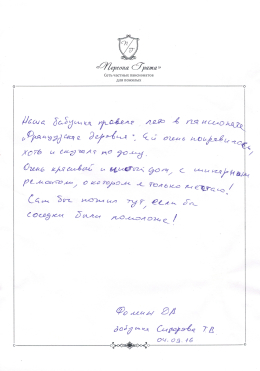 «Персона Грата»
Сеть частных пансионатов
для пожилых
Наша бабушка провела лето в пансионате
"Французская деревня". Ей очень понравилось,
хоть и скучала по дому.
Очень красивый и чистый дом, с шикарным
ремонтом, о котором я только мечтаю!
Сам бы пожил тут, если бы
соседки были помоложе!
Фомин ДВ
бабушка Сидорова ТВ
04.09.16